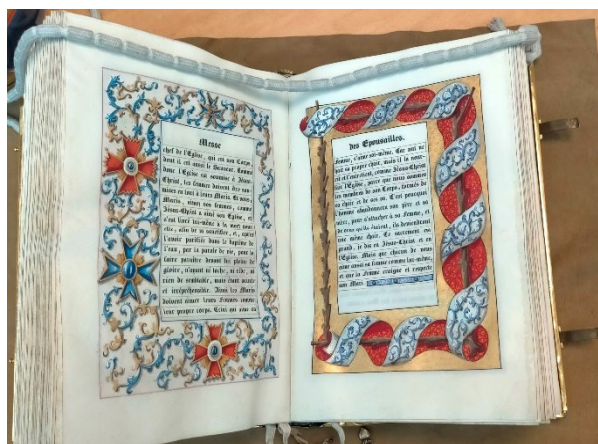 Messe
chef de l'Eglise, qui est son Corps,
dont il est aussi le Sauveur. Comme
donc l'Eglise est soumise à Jésus-
Christ, les femmes doivent être sou-
mises en tout à leurs Maris. Et vous,
Maris, aimez vos femmes, comme
Jésus-Christ a aimé son Eglise, et
s'est livré lui-même à la mort pour
elle, afin de la sanctifier, et, après
l'avoir purifiée dans le baptême de
l'eau, par la parole de vie, pour la
faire paraître devant lui pleine de
gloire, n'ayant ni tache, ni ride, ni
rien de semblable, mais étant sainte
et irrépréhensible. Ainsi les Maris
doivent aimer leurs Femmes comme
leur propre corps. Celui qui aime sa
des Epousailles.
femme, s'aime soi-même. Car nul ne
hait sa propre chair, mais il la nour-
rit et l'entretient, comme Jésus-Christ
fait l'Eglise, parce que nous sommes
les membres de son Corps, formés de
sa chair et de ses os. C'est pourquoi
l'homme abandonnera son père et sa
mère, pour s'attacher à sa femme, et
de deux qu'ils étaient, ils deviendront
une même chair. Ce sacrement est
grand, je dis en Jésus-Christ et en
l'Eglise. Mais que chacun de vous
aime aussi sa femme comme lui-même,
et que la Femme craigne et respecte
son Mari.